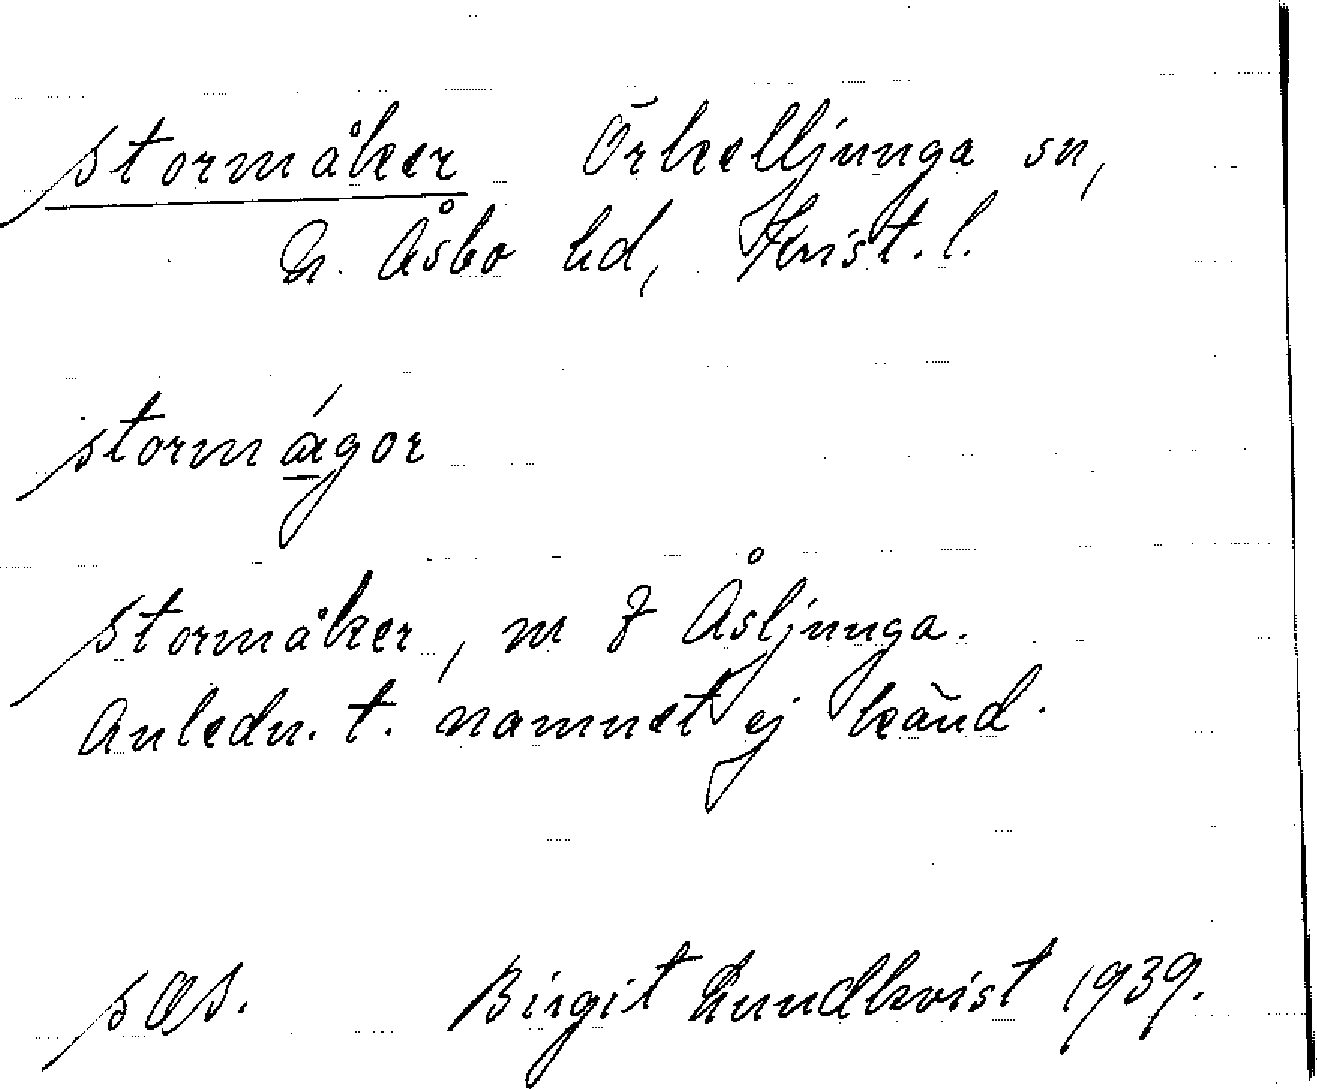 stormåker Örkelljunga sn,
N. Åsbo hd, Krist. l.
stormágor
stormåker, m f Åsljunga.
Anledn. t. namnet ej känd.
sås.  Birgit Lundkvist 1939.